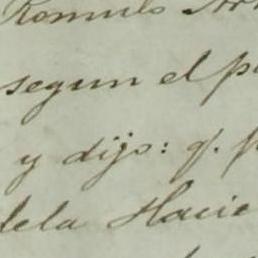 Romulo Ar
segun el p
y dijo: q. p
dela Hacie